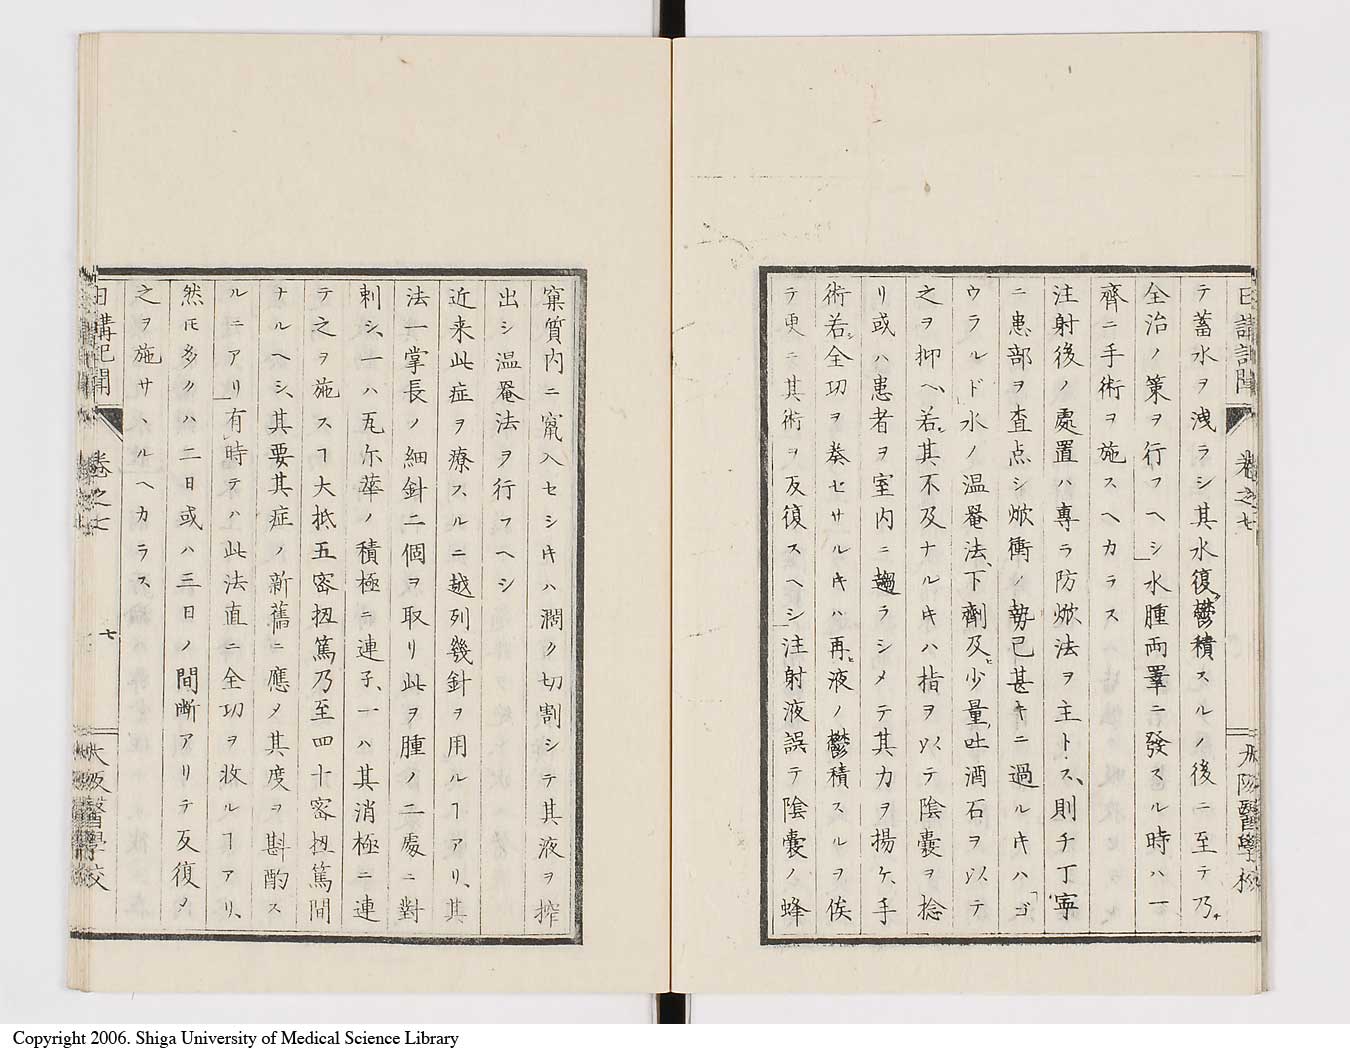 テ蓄水ヲ洩ラシ其水復鬱積スルノ後ニ至テ乃
全治ノ策ヲ行フヘシ水腫両睪ニ發スル時ハ一
齊ニ手術ヲ施スヘカラス
注射後ノ處置ハ專ラ防焮法ヲ主トス、則チ丁寧
ニ患部ヲ査点シ焮衝ノ勢已甚キニ過ルキハ「ゴ
ウラルド」水ノ温罨法、下劑及ヒ少量吐酒石ヲ以テ
之ヲ抑ヘ、若其不及ナルキハ指ヲ以テ陰囊ヲ捻
リ或ハ患者ヲ室内ニ趨ラシメテ其力ヲ揚ケ、手
術若シ全功ヲ奏セサルキハ再ヒ液ノ鬱積スルヲ俟
テ更ニ其術ヲ反復スヘシ注射液誤テ陰囊ノ蜂
窠質内ニ竄入セシキハ潤ク切割シテ其液ヲ搾
出シ温罨法ヲ行フヘシ
近来此症ヲ療スルニ越列幾針ヲ用ルヿアリ、其
法一掌長ノ細針二個ヲ取リ此ヲ腫ノ二處ニ對
刺シ、一ハ瓦尓華ノ積極ニ連子、一ハ其消極ニ連
テ之ヲ施スヿ大抵五密扭篤乃至四十密扭篤間
ナルヘシ、其要其症ノ新舊ニ應メ其度ヲ斟酌ス
ルニアリ有時テハ此法直ニ全功ヲ收ルヿアリ、
然𪜈多クハ二日或ハ三日ノ間断アリテ反復メ
之ヲ施サヽルヘカラス
日講記聞
卷之七
七
大阪醫學校
Copyright 2006. Shiga University of Medical Science Library